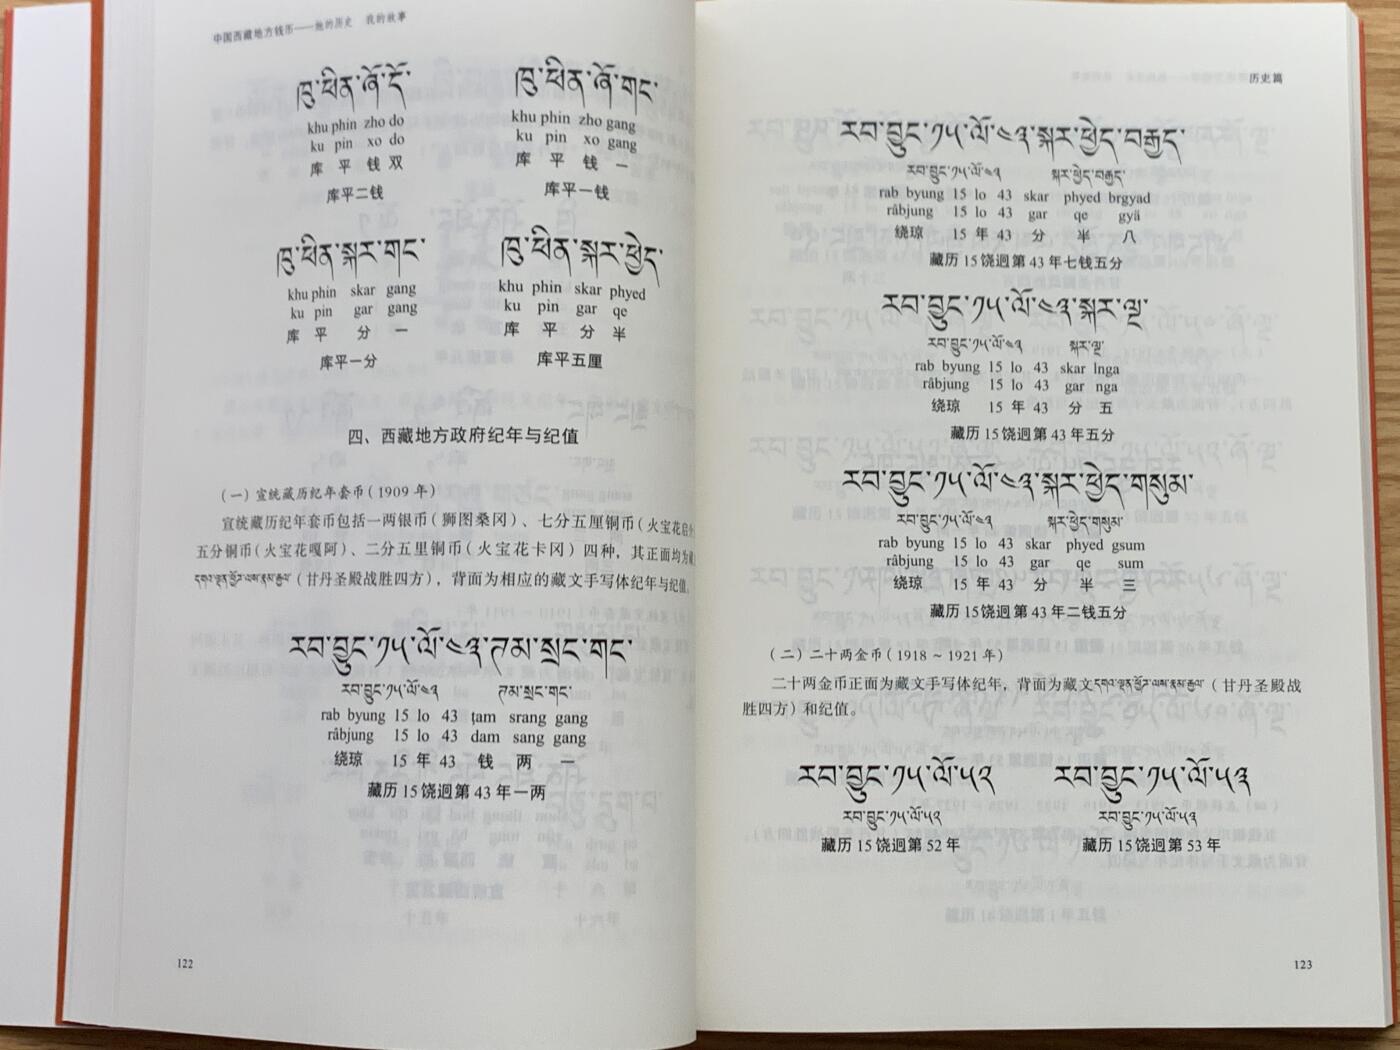 中国西藏地方钱币——她的历史 我的故事
ཁུ་ཕིན་ཞོ་དོ་
khu phin zho do
ku pin xo do
库 平 钱 双
库平二钱
ཁུ་ཕིན་ཞོ་གང་
khu phin zho gang
ku pin xo gang
库 平 钱 一
库平一钱
ཁུ་ཕིན་སྐར་གང་
khu phin skar gang
ku pin gar gang
库 平 分 一
库平一分
ཁུ་ཕིན་སྐར་ཕྱེད་
khu phin skar phyed
ku pin gar qe
库 平 分 半
库平五厘
四、西藏地方政府纪年与纪值
（一）宣统藏历纪年套币（1909 年）
宣统藏历纪年套币包括一两银币（狮图桑冈）、七分五厘铜币（火宝花启
五分铜币（火宝花嘎阿）、二分五里铜币（火宝花卡冈）四种，其正面均为
དགའ་ལྡན་ཕྱོགས་ལས་རྣམ་རྒྱལ་（甘丹圣殿战胜四方），背面为相应的藏文手写体纪年与纪值。
རབ་བྱུང་༡༥་ལོ་༤༣་ཊམ་སྲང་གང་
རབ་བྱུང་༡༥་ལོ་༤༣ ཊམ་སྲང་གང་
rab byung 15 lo 43 ṭam srang gang
râbjung 15 lo 43 dam sang gang
绕琼 15 年 43 钱 两 一
藏历 15 饶迥第 43 年一两
122
历史篇
རབ་བྱུང་༡༥་ལོ་༤༣་སྐར་ཕྱེད་བརྒྱད་
རབ་བྱུང་༡༥་ལོ་༤༣ སྐར་ཕྱེད་བརྒྱད་
rab byung 15 lo 43 skar phyed brgyad
râbjung 15 lo 43 gar qe gyä
绕琼 15 年 43 分 半 八
藏历 15 饶迥第 43 年七钱五分
རབ་བྱུང་༡༥་ལོ་༤༣་སྐར་ལྔ་
རབ་བྱུང་༡༥་ལོ་༤༣ སྐར་ལྔ་
rab byung 15 lo 43 skar lnga
râbjung 15 lo 43 gar nga
绕琼 15 年 43 分 五
藏历 15 饶迥第 43 年五分
རབ་བྱུང་༡༥་ལོ་༤༣་སྐར་ཕྱེད་གསུམ་
རབ་བྱུང་༡༥་ལོ་༤༣ སྐར་ཕྱེད་གསུམ་
rab byung 15 lo 43 skar phyed gsum
râbjung 15 lo 43 gar qe sum
绕琼 15 年 43 分 半 三
藏历 15 饶迥第 43 年二钱五分
（二）二十两金币（1918 ~ 1921 年）
二十两金币正面为藏文手写体纪年，背面为藏文དགའ་ལྡན་ཕྱོགས་ལས་རྣམ་རྒྱལ་（甘丹圣殿战
胜四方）和纪值。
རབ་བྱུང་༡༥་ལོ་༥༢
རབ་བྱུང་༡༥་ལོ་༥༢
藏历 15 饶迥第 52 年
རབ་བྱུང་༡༥་ལོ་༥༣
རབ་བྱུང་༡༥་ལོ་༥༣
藏历 15 饶迥第 53 年
123